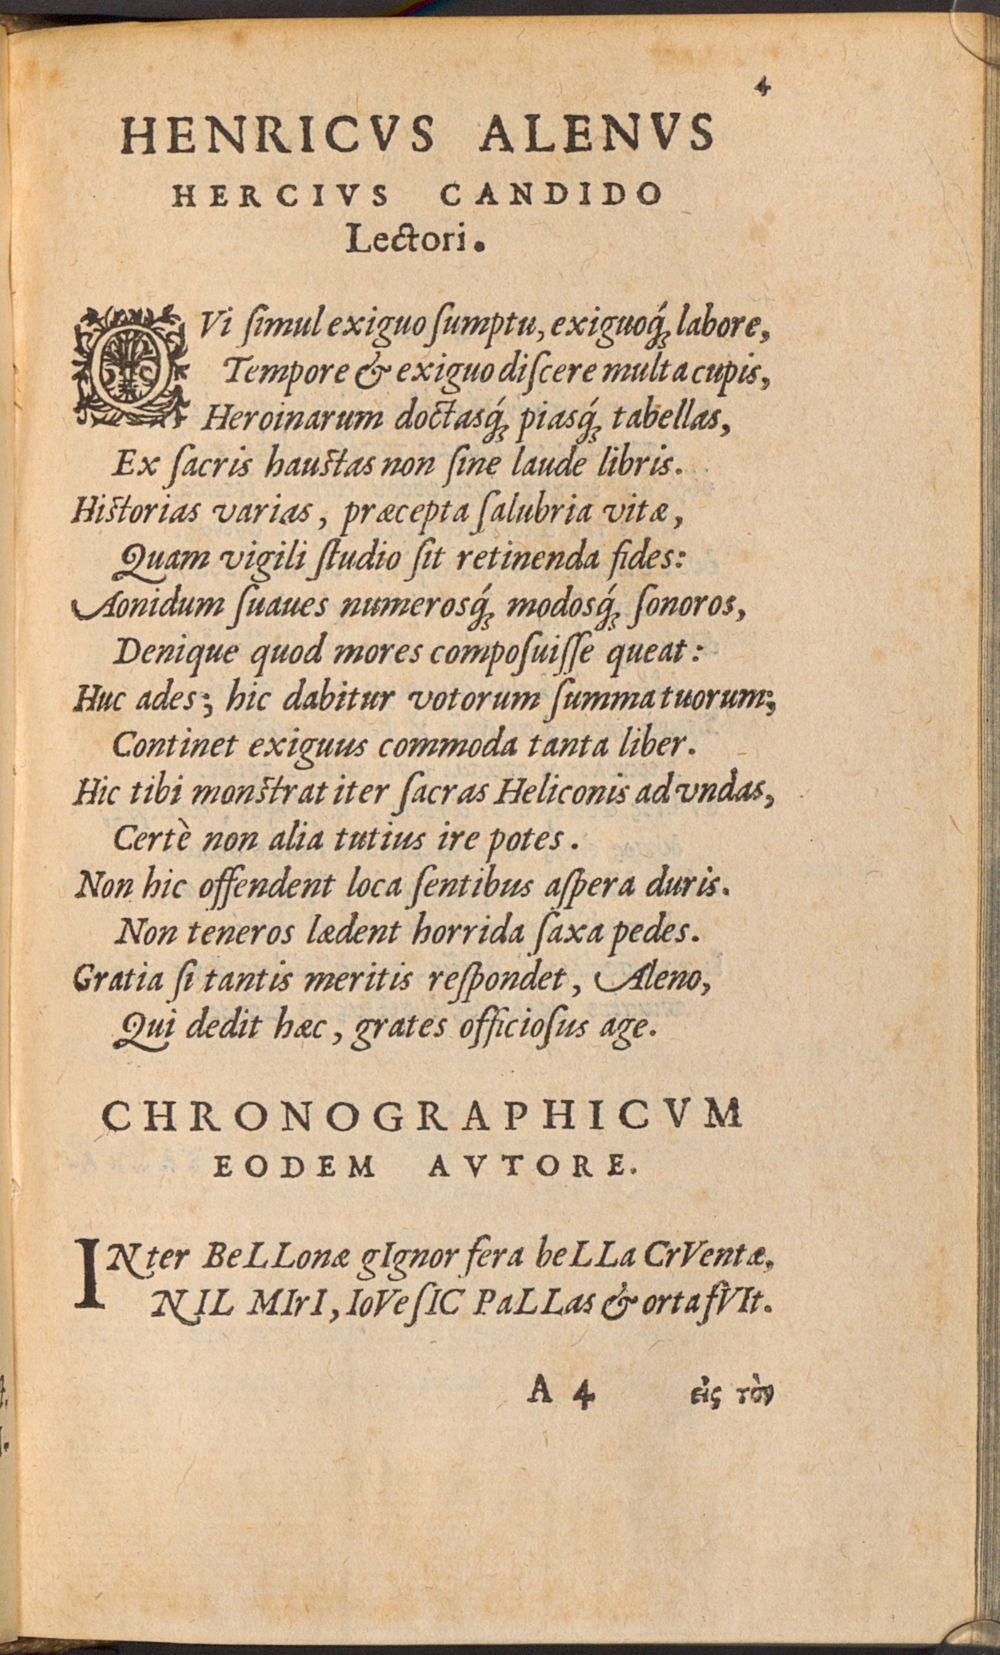 4
HENRICVS ALENVS
HERCIVS CANDIDO
Lectori.
QVi ſimul exiguo ſumptu, exiguoq́ꝫ labore,
Tempore & exiguo diſcere multa cupis,
Heroinarum doctasq́ꝫ piasq́ꝫ tabellas,
Ex ſacris hauſtas non ſine laude libris.
Hiſtorias varias, præcepta ſalubria vitæ,
Quam vigili ſtudio ſit retinenda fides:
Aonidum ſuaues numerosq́ꝫ modosq́ꝫ ſonoros,
Denique quod mores compoſuiſſe queat:
Huc ades; hic dabitur votorum ſumma tuorum;
Continet exiguus commoda tanta liber.
Hic tibi monſtrat iter ſacras Heliconis ad vndas,
Certè non alia tutius ire potes.
Non hic offendent loca ſentibus aſpera duris.
Non teneros lædent horrida ſaxa pedes.
Gratia ſi tantis meritis reſpondet, Aleno,
Qui dedit hæc, grates officioſus age.
CHRONOGRAPHICVM
EODEM AVTORE.
INter BeLLonæ gIgnor fera beLLa CrVentæ,
NIL MIrI, IoVe ſIC PaLLas & orta fVIt.
A 4 εἰς τὸν